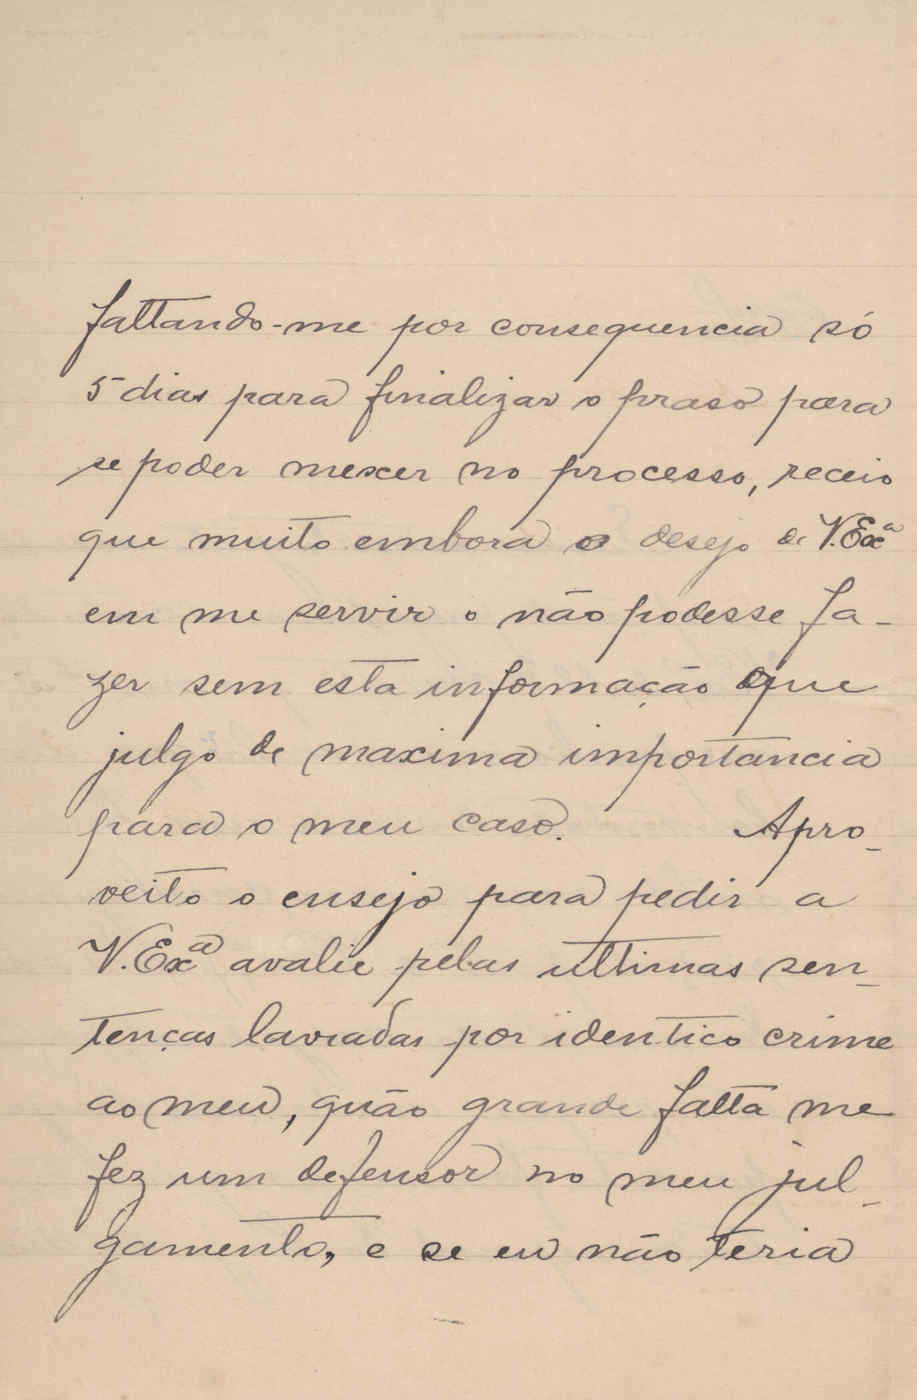 faltando-me por consequencia só
5 dias para finalizar o praso para
se poder mexer no processo, receio
que muito embora o desejo de V. Exª
em me servir o não podesse fa-
zer sem esta informação que
julgo de maxima importancia
para o meu caso. Apro-
veito o ensejo para pedir a
V. Exª avalie pelas ultimas sen-
tenças lavradas por identico crime
ao meu, quão grande falta me
fez um defensor no meu jul-
gamento, e se eu não teria